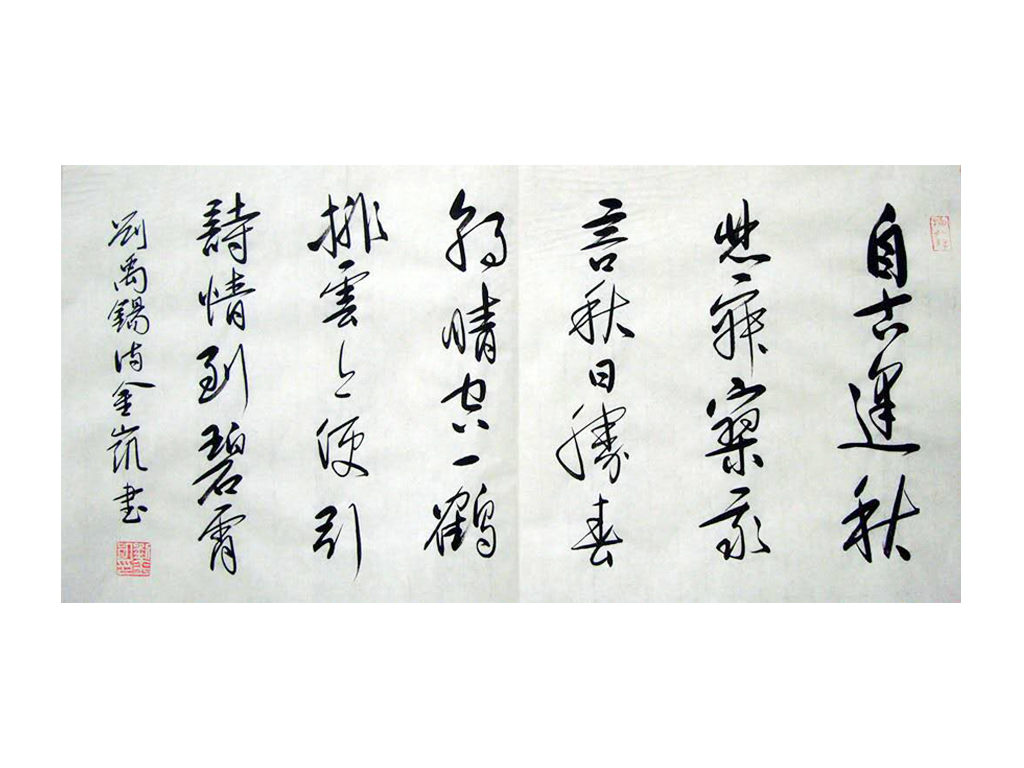 自古逢秋
悲寂寥我
言秋日勝春
朝晴空一鶴
排雲上便引
詩情到碧霄
劉禹錫詩金書